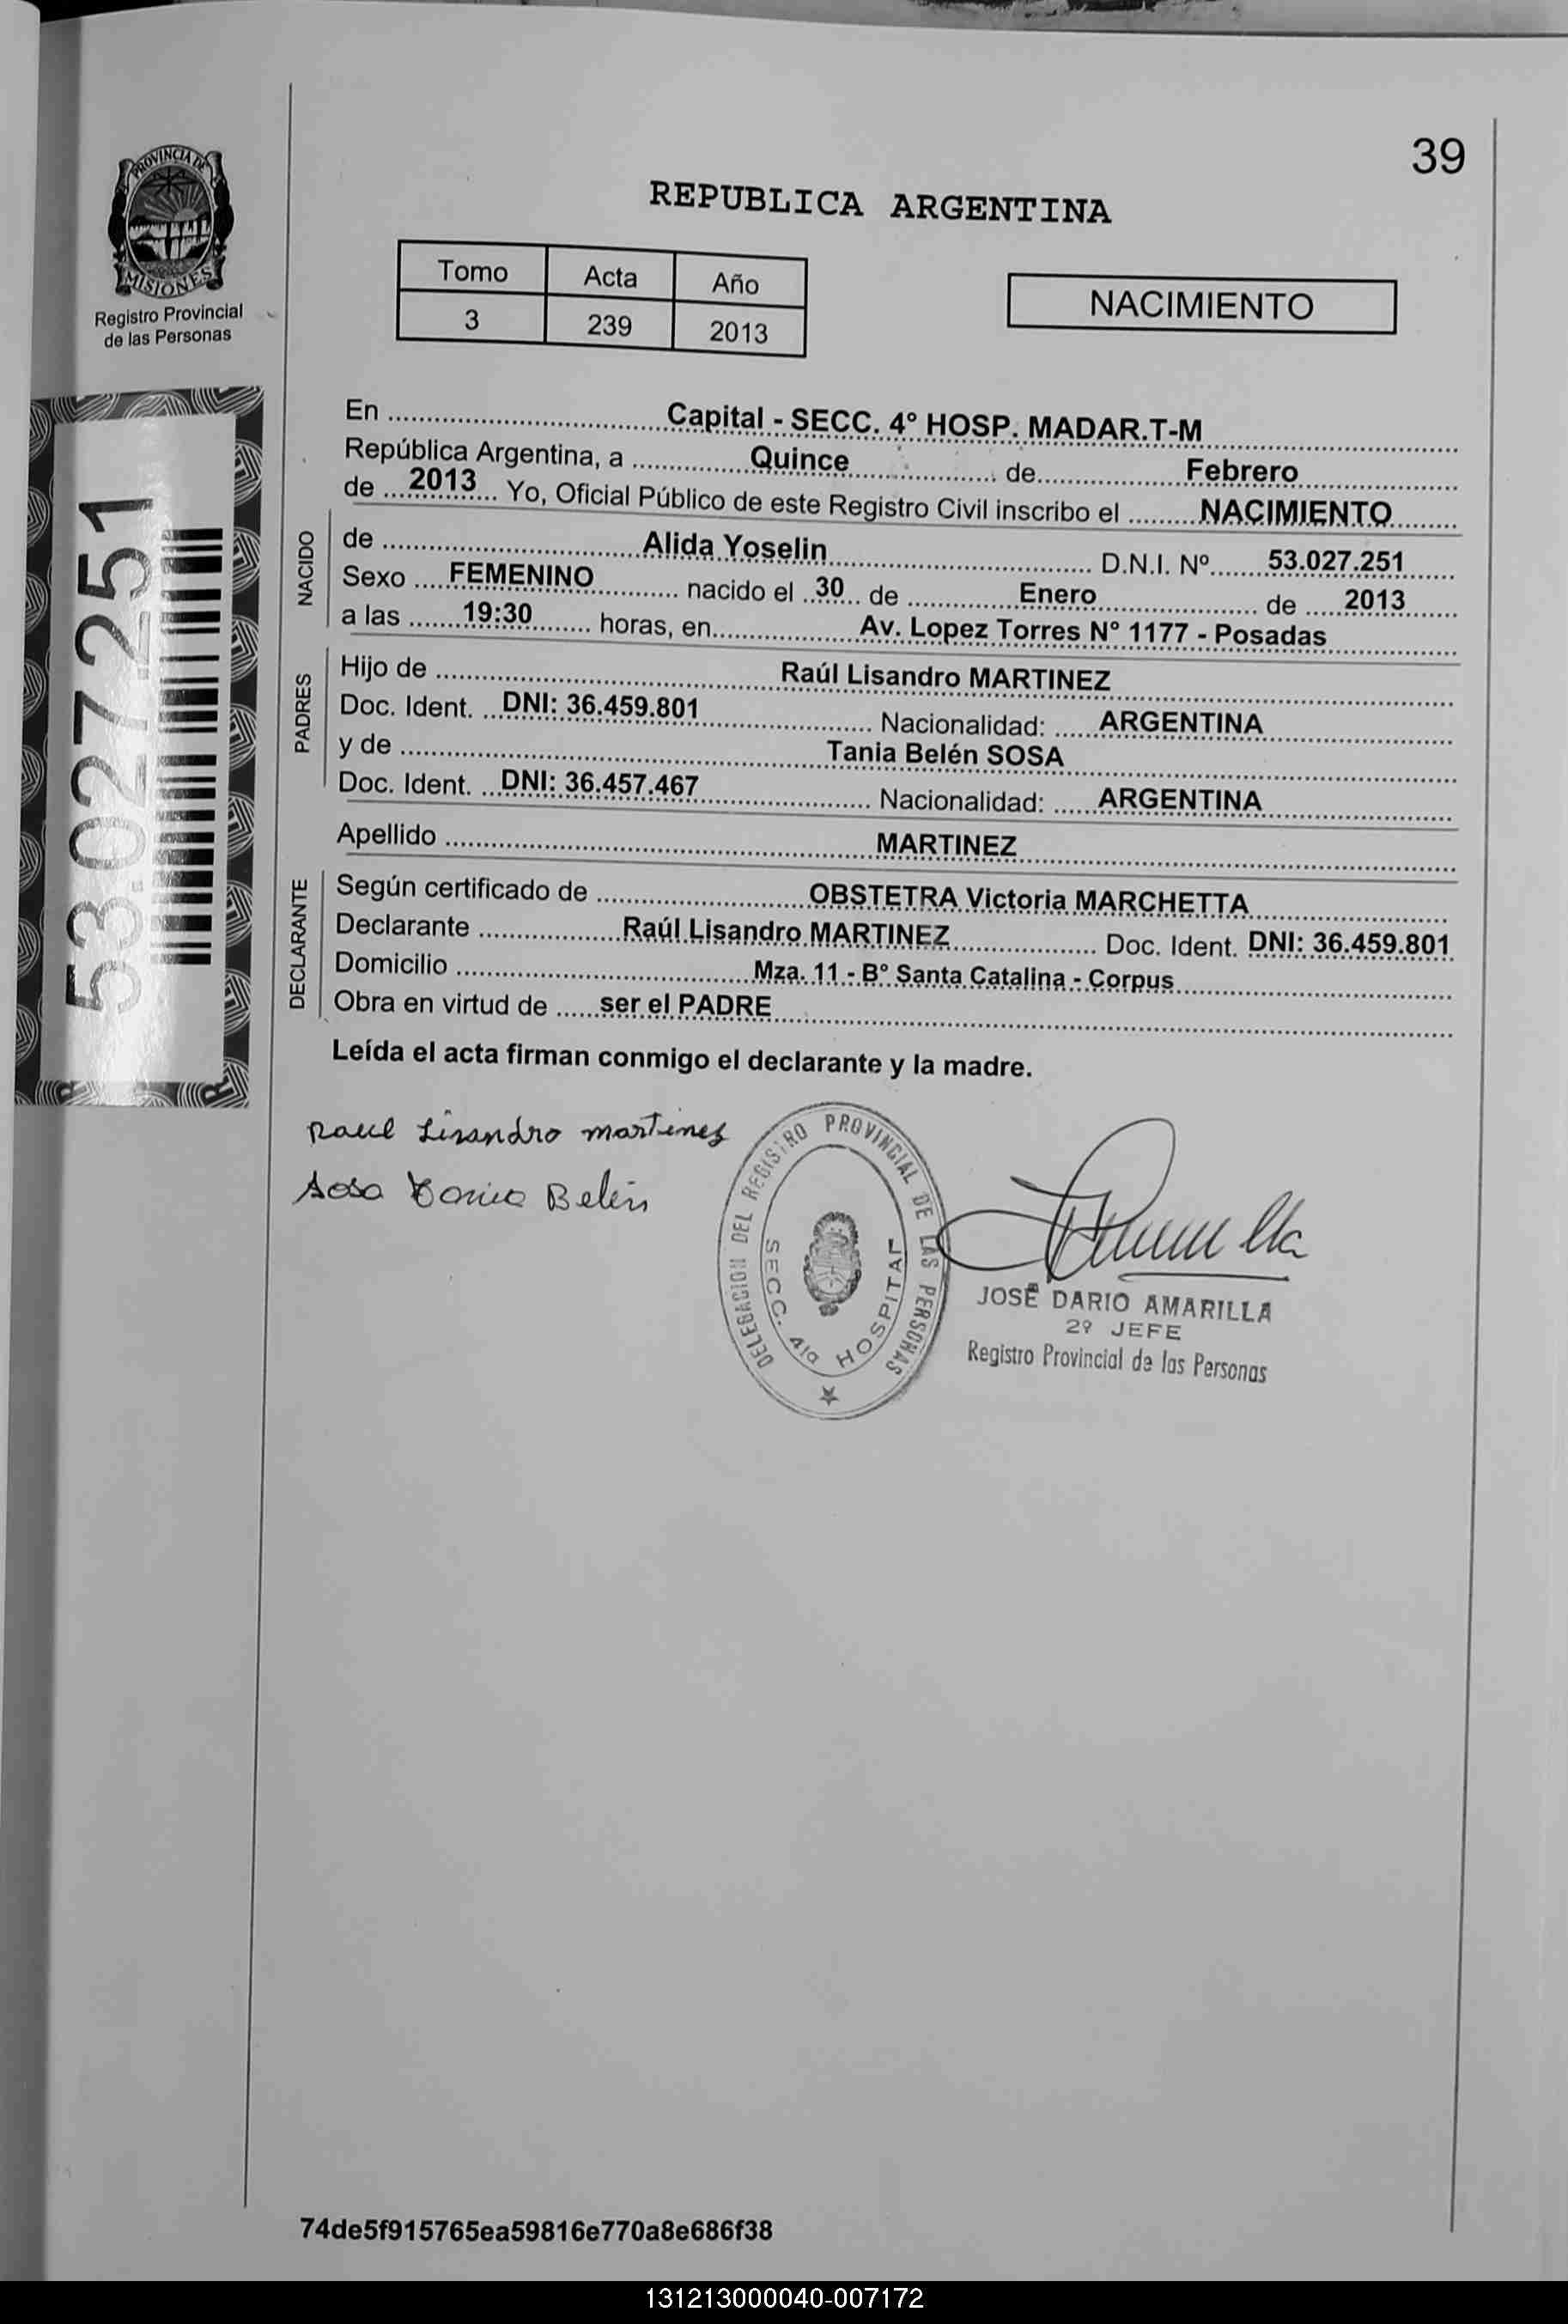 39
PROVINCIA DE
MISIONES
Registro Provincial
de las Personas
REPUBLICA ARGENTINA
Tomo Acta Año
3 239 2013
NACIMIENTO
53.027.251
En Capital - SECC. 4º HOSP. MADAR.T-M
República Argentina, a Quince de Febrero
de 2013 Yo, Oficial Público de este Registro Civil inscribo el NACIMIENTO
NACIDO
de Alida Yoselin D.N.I. Nº 53.027.251
Sexo FEMENINO nacido el 30 de Enero de 2013
a las 19:30 horas, en Av. Lopez Torres N° 1177 - Posadas
PADRES
Hijo de Raúl Lisandro MARTINEZ
Doc. Ident. DNI: 36.459.801 Nacionalidad: ARGENTINA
y de Tania Belén SOSA
Doc. Ident. DNI: 36.457.467 Nacionalidad: ARGENTINA
Apellido MARTINEZ
DECLARANTE
Según certificado de OBSTETRA Victoria MARCHETTA
Declarante Raúl Lisandro MARTINEZ Doc. Ident. DNI: 36.459.801
Domicilio Mza. 11 - B° Santa Catalina - Corpus
Obra en virtud de ser el PADRE
Leída el acta firman conmigo el declarante y la madre.
Raul Lisandro Martinez
Sosa Tania Belén
DELEGACION DEL REGISTRO PROVINCIAL DE LAS PERSONAS
SECC. 4ta HOSPITAL
JOSÉ DARIO AMARILLA
2º JEFE
Registro Provincial de las Personas
74de5f915765ea59816e770a8e686f38
131213000040-007172